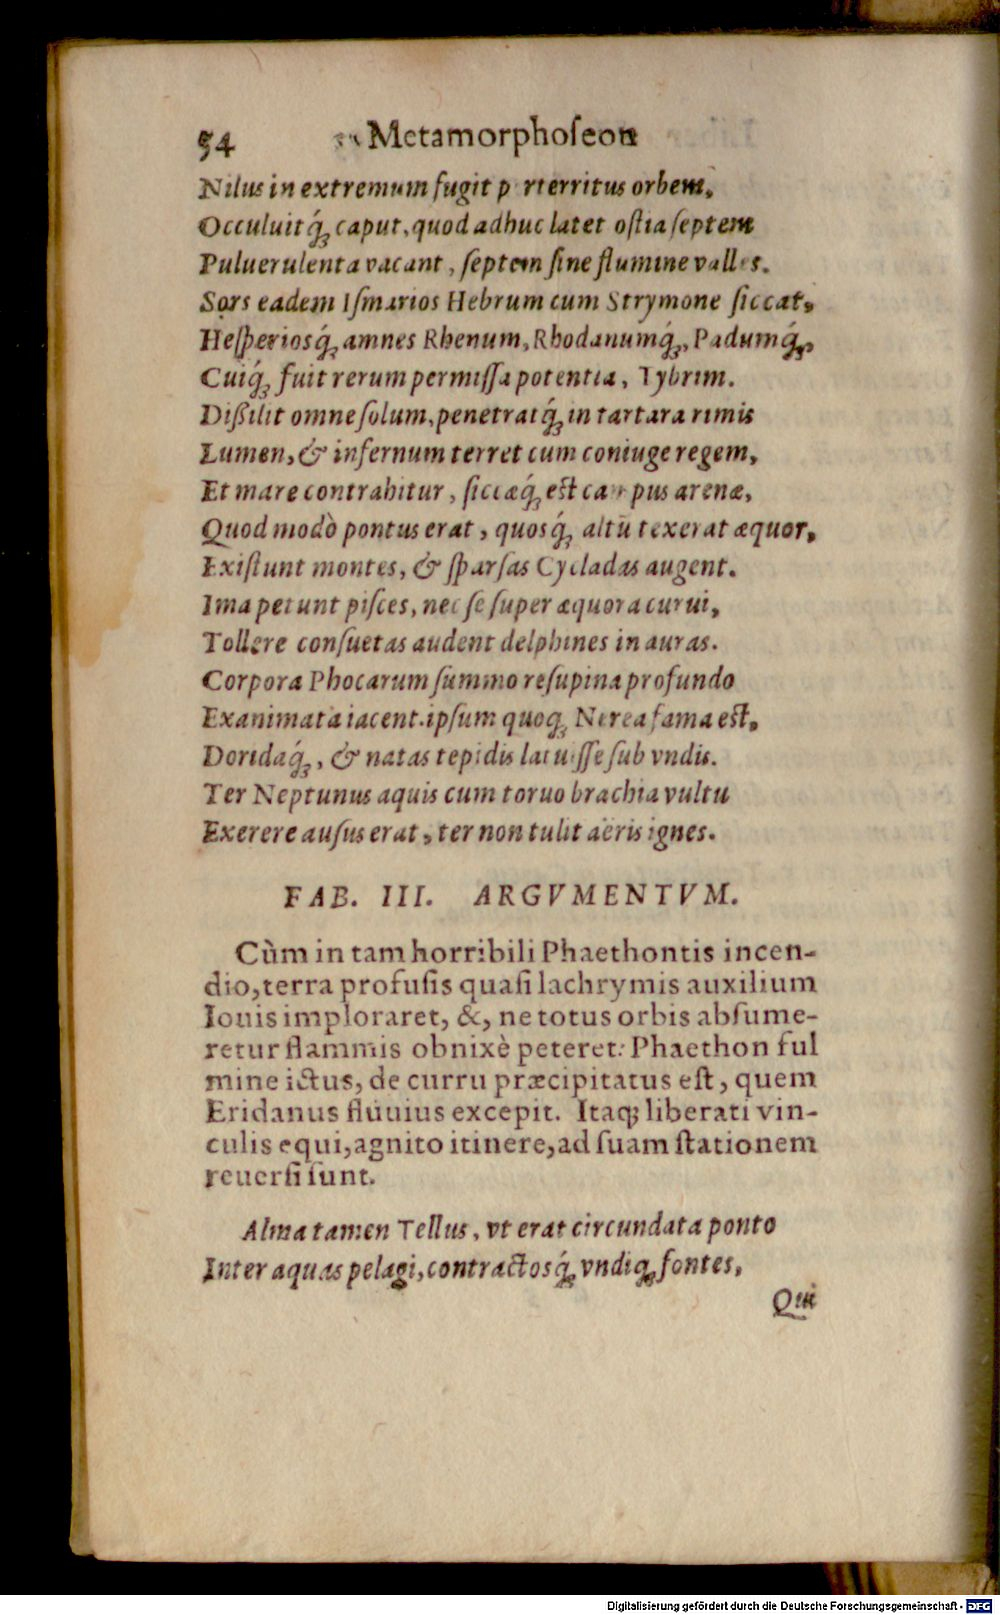 54 Metamorphoseon
Nilus in extremum fugit p rterritus orbem,
Occuluitq́ꝫ caput, quod adhuc latet ostia septem
Puluerulenta vacant, septem sine flumine valles.
Sors eadem Ismarios Hebrum cum Strymone siccat,
Hesperiosq́ꝫ amnes Rhenum, Rhodanumq́ꝫ, Padumq́ꝫ,
Cuiq́ꝫ fuit rerum permissa potentia, Tybrim.
Dißilit omne solum, penetratq́ꝫ in tartara rimis
Lumen, & infernum terret cum coniuge regem,
Et mare contrahitur, siccæq́ꝫ est campus arenæ,
Quod modò pontus erat, quosq́ꝫ altū texerat æquor,
Existunt montes, & sparsas Cycladas augent.
Ima petunt pisces, nec se super æquora curui,
Tollere consuetas audent delphines in auras.
Corpora Phocarum summo resupina profundo
Exanimata iacent. ipsum quoqꝫ Nerea fama est,
Doridaq́ꝫ, & natas tepidis latuisse sub vndis.
Ter Neptunus aquis cum toruo brachia vultu
Exerere ausus erat, ter non tulit aëris ignes.
FAB. III. ARGVMENTVM.
Cùm in tam horribili Phaethontis incen-
dio, terra profusis quasi lachrymis auxilium
Iouis imploraret, &, ne totus orbis absume-
retur flammis obnixè peteret: Phaethon ful
mine ictus, de curru præcipitatus est, quem
Eridanus fluuius excepit. Itaqꝫ liberati vin-
culis equi, agnito itinere, ad suam stationem
reuersi sunt.
Alma tamen Tellus, vt erat circundata ponto
Inter aquas pelagi, contractosq́ꝫ vndiqꝫ fontes,
Qui
Digitalisierung gefördert durch die Deutsche Forschungsgemeinschaft - DFG